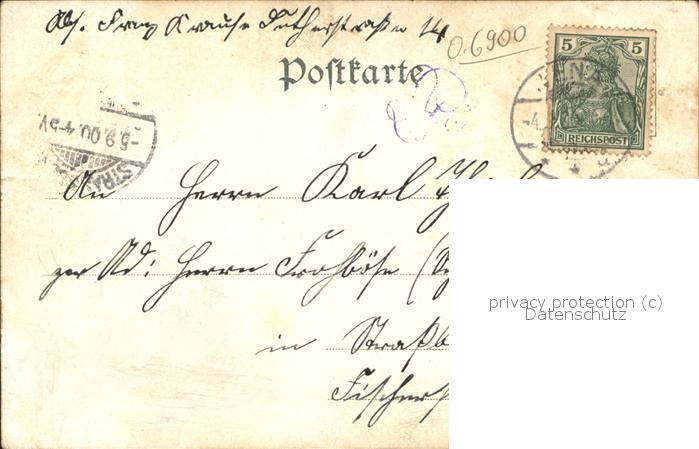 Abs. Franz Krause Lutherstraße 14
0.6900
Postkarte
5 5
REICHSPOST
JENA
-4.
* * a
-5.9.00.4-5V.
STRA
An Herrn Karl
zur Ad: Herrn Frohböse
in Straßb
Fischers
privacy protection (c)
Datenschutz